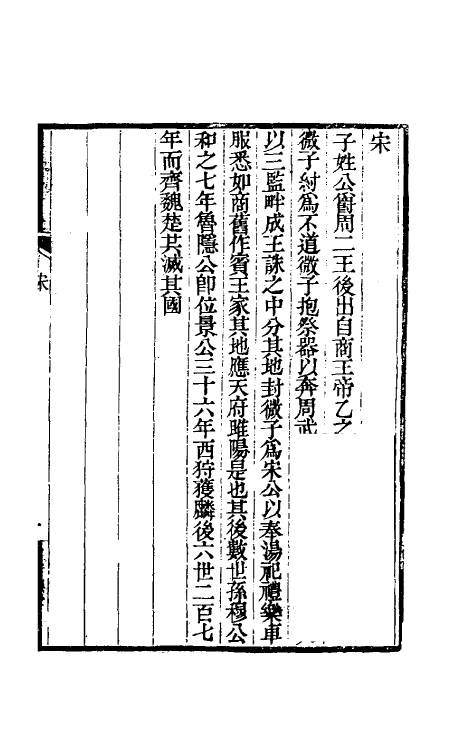 宋
子姓公爵周二王後出自商王帝乙之
微子紂爲不道微子抱祭器以奔周武
以三監畔成王誅之中分其地封微子爲宋公以奉湯祀禮樂車
服悉如商舊作賓王家其地應天府雎陽是也其後數世孫穆公
和之七年魯隱公卽位景公三十六年西狩獲麟後六世二百七
年而齊魏楚共滅其國
宋